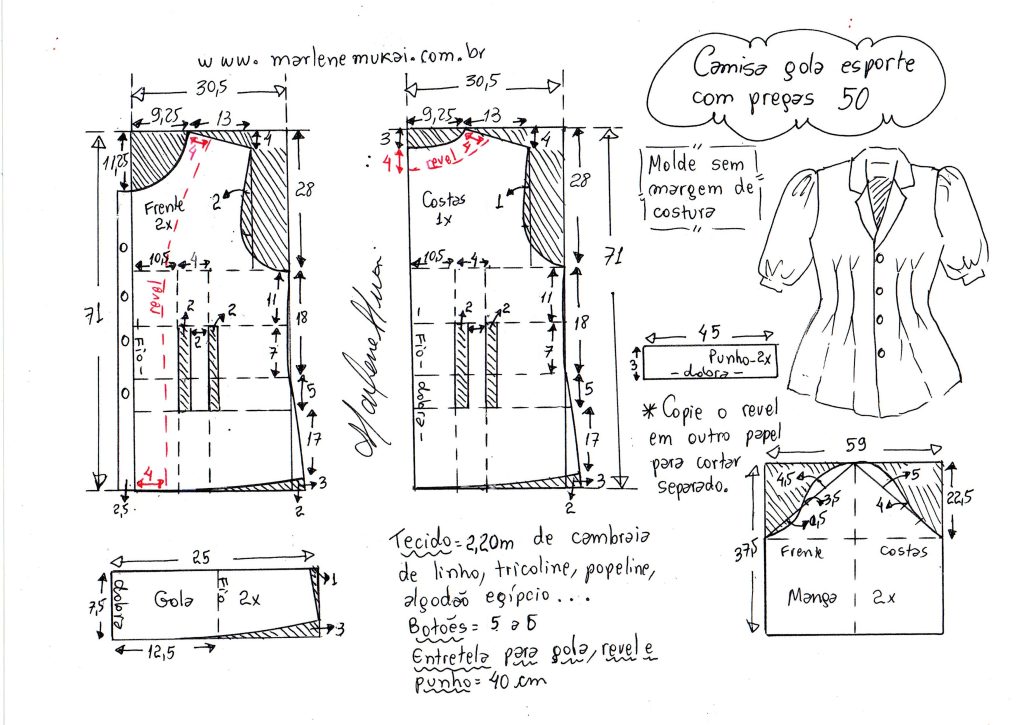 www.marlenemukai.com.br
Camisa gola esporte
com pregas 50
30,5
9,25 13
11,25
4
4
28
2
Frente
2x
10,5 4
71
revel
11
18
2 2
2
7
Fio
5
17
4
2,5
3
2
30,5
9,25 13
3
4
4
revel
5
28
1
Costas
1x
10,5 4
71
11
18
2 2
2
7
Fio
dobra
5
17
3
2
Marlene Mukai
Molde sem
margem de
costura
45
3
Punho-2x
-dobra-
* Copie o revel
em outro papel
para cortar
separado.
59
4,5
5
3,5
4
22,5
37,5
Frente
Costas
Manga 2x
25
7,5
dobra
Gola
Fio
2x
1
3
12,5
Tecido=2,20m de cambraia
de linho, tricoline, popeline,
algodão egípcio...
Botões= 5 a 6
Entretela para gola, revel e
punho= 40 cm